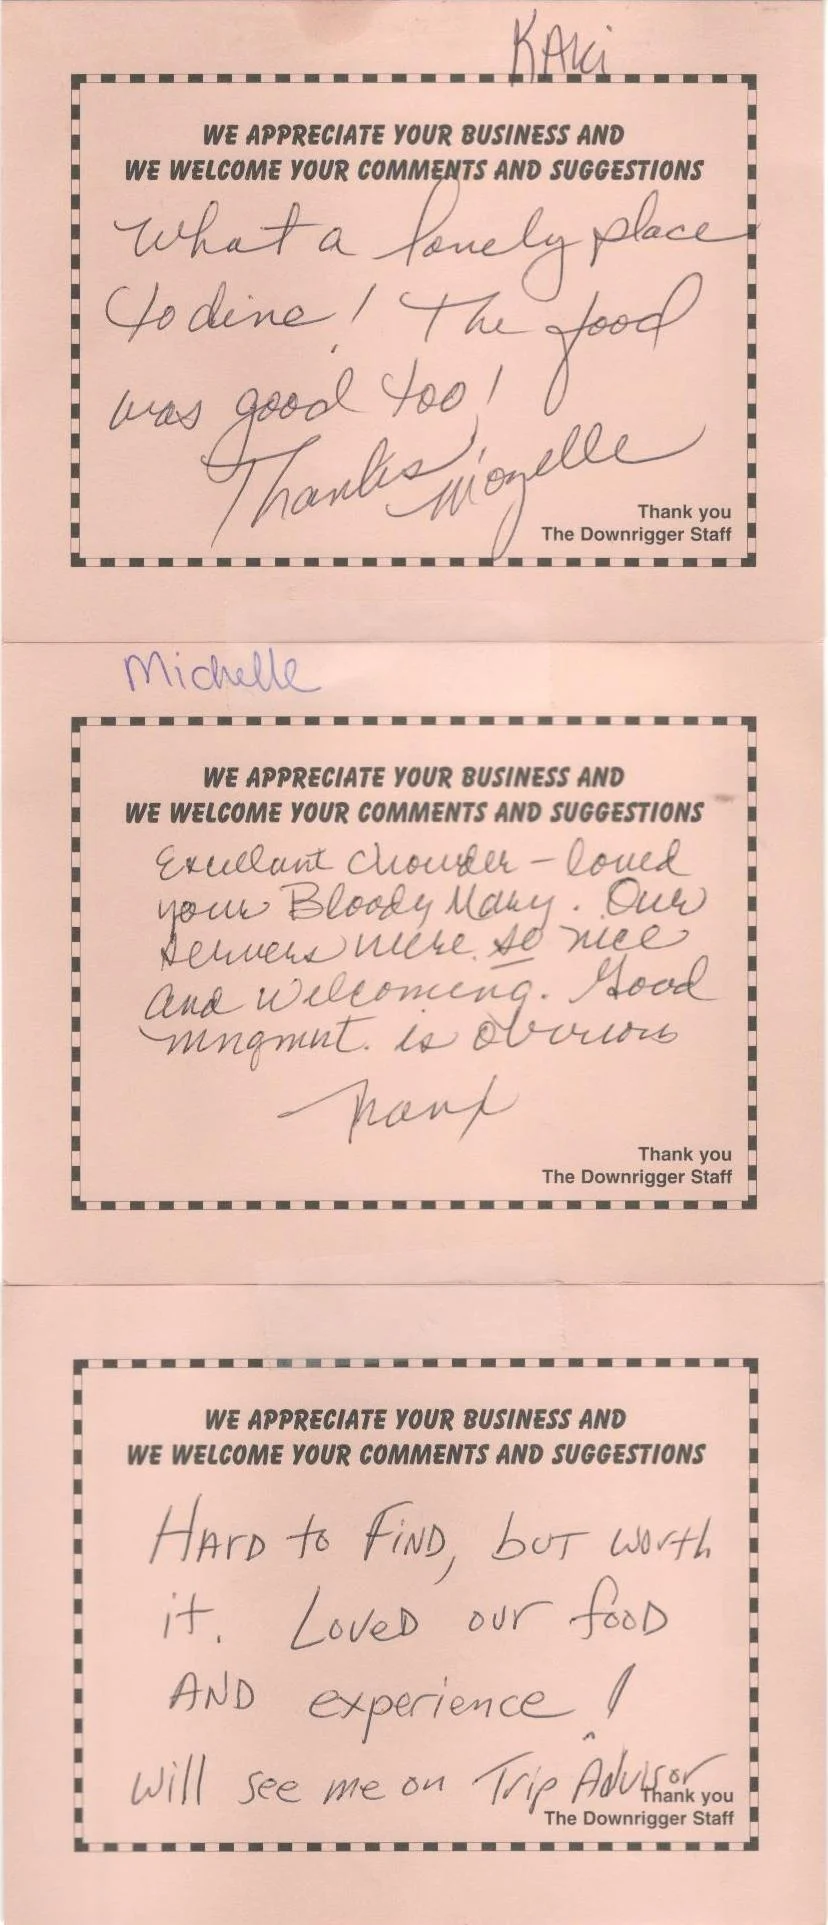 KAKi
WE APPRECIATE YOUR BUSINESS AND
WE WELCOME YOUR COMMENTS AND SUGGESTIONS
What a lovely place
to dine! The food
was good too!
Thanks, Mozelle
Thank you
The Downrigger Staff
Michelle
WE APPRECIATE YOUR BUSINESS AND
WE WELCOME YOUR COMMENTS AND SUGGESTIONS
Excellant chowder – loved
your Bloody Mary. Our
servers were so nice
and welcoming. Good
mngmnt. is obvious
Thanx
Thank you
The Downrigger Staff
WE APPRECIATE YOUR BUSINESS AND
WE WELCOME YOUR COMMENTS AND SUGGESTIONS
HArD to FiND, buT worth
it. LoveD our fooD
AND experience!
Will see me on Trip Advisor
Thank you
The Downrigger Staff